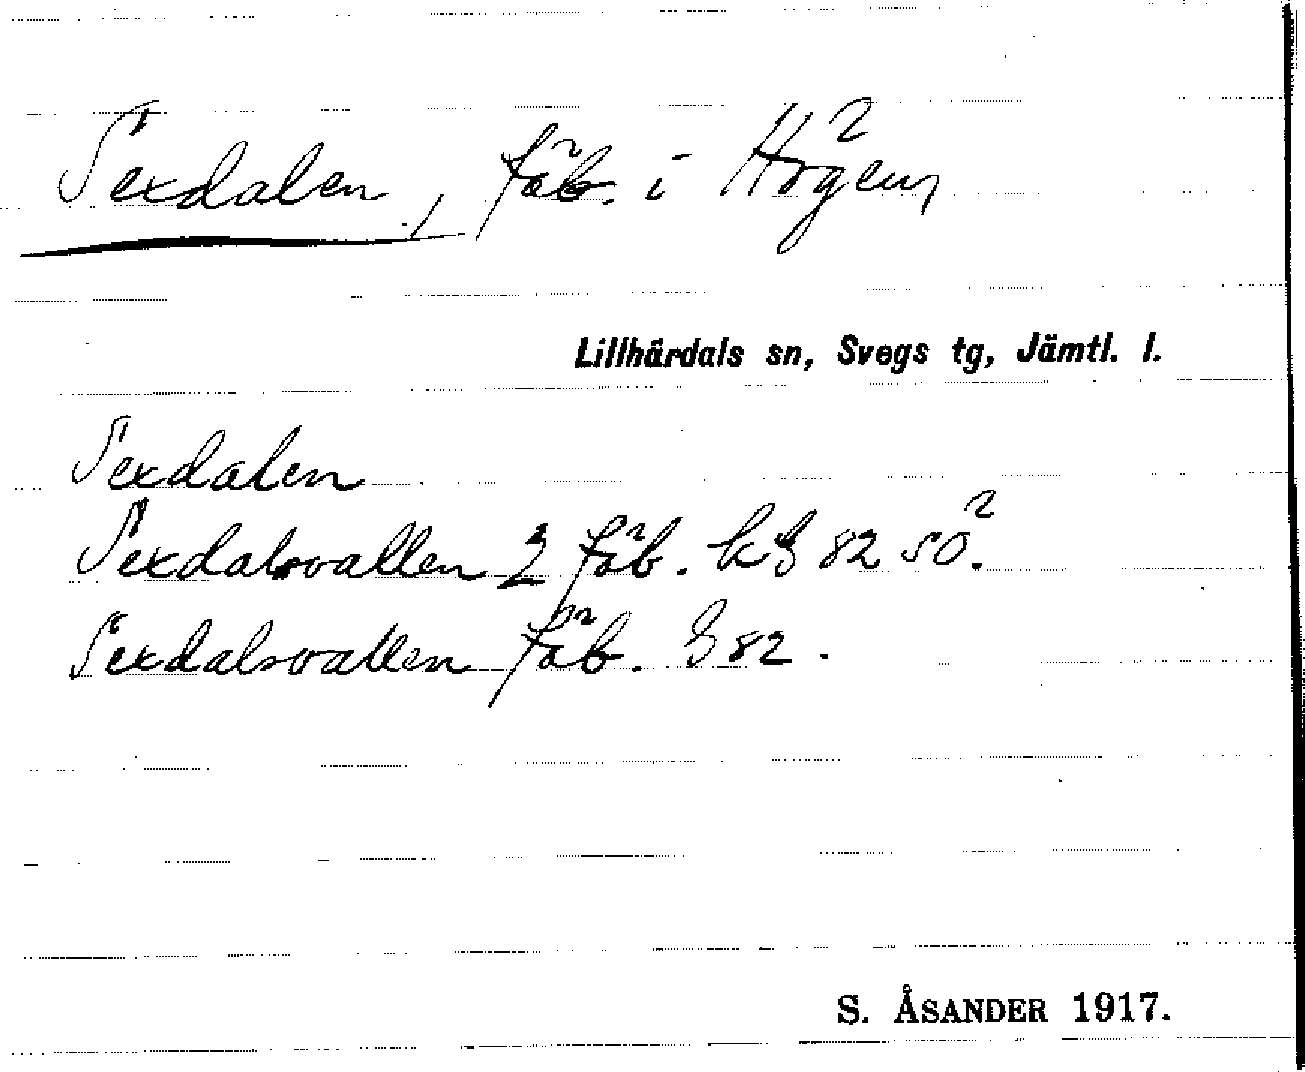 Sexdalen, fäb. i Högen
Lillhärdals sn, Svegs tg, Jämtl. l.
Sexdalen
Sexdalsvallen 2 fäb. k 82 50.
Sexdalsvallen fäb. 82.
S. ÅSANDER 1917.